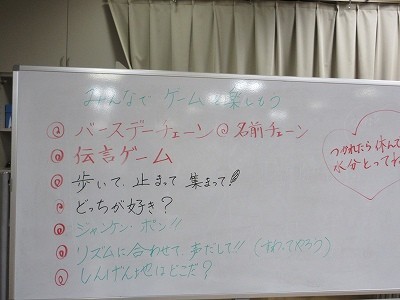 みんなで ゲームを楽しもう
◎ バースデーチェーン ◎ 名前チェーン
◎ 伝言ゲーム
◎ 歩いて、止まって 集まって!
◎ どっちが好き?
◎ ジャンケン・ポン!!
◎ リズムに合わせて、声だして!! (すわってだろう)
◎ しんげん地はどこだ?
つかれたら休んで
水分とってね